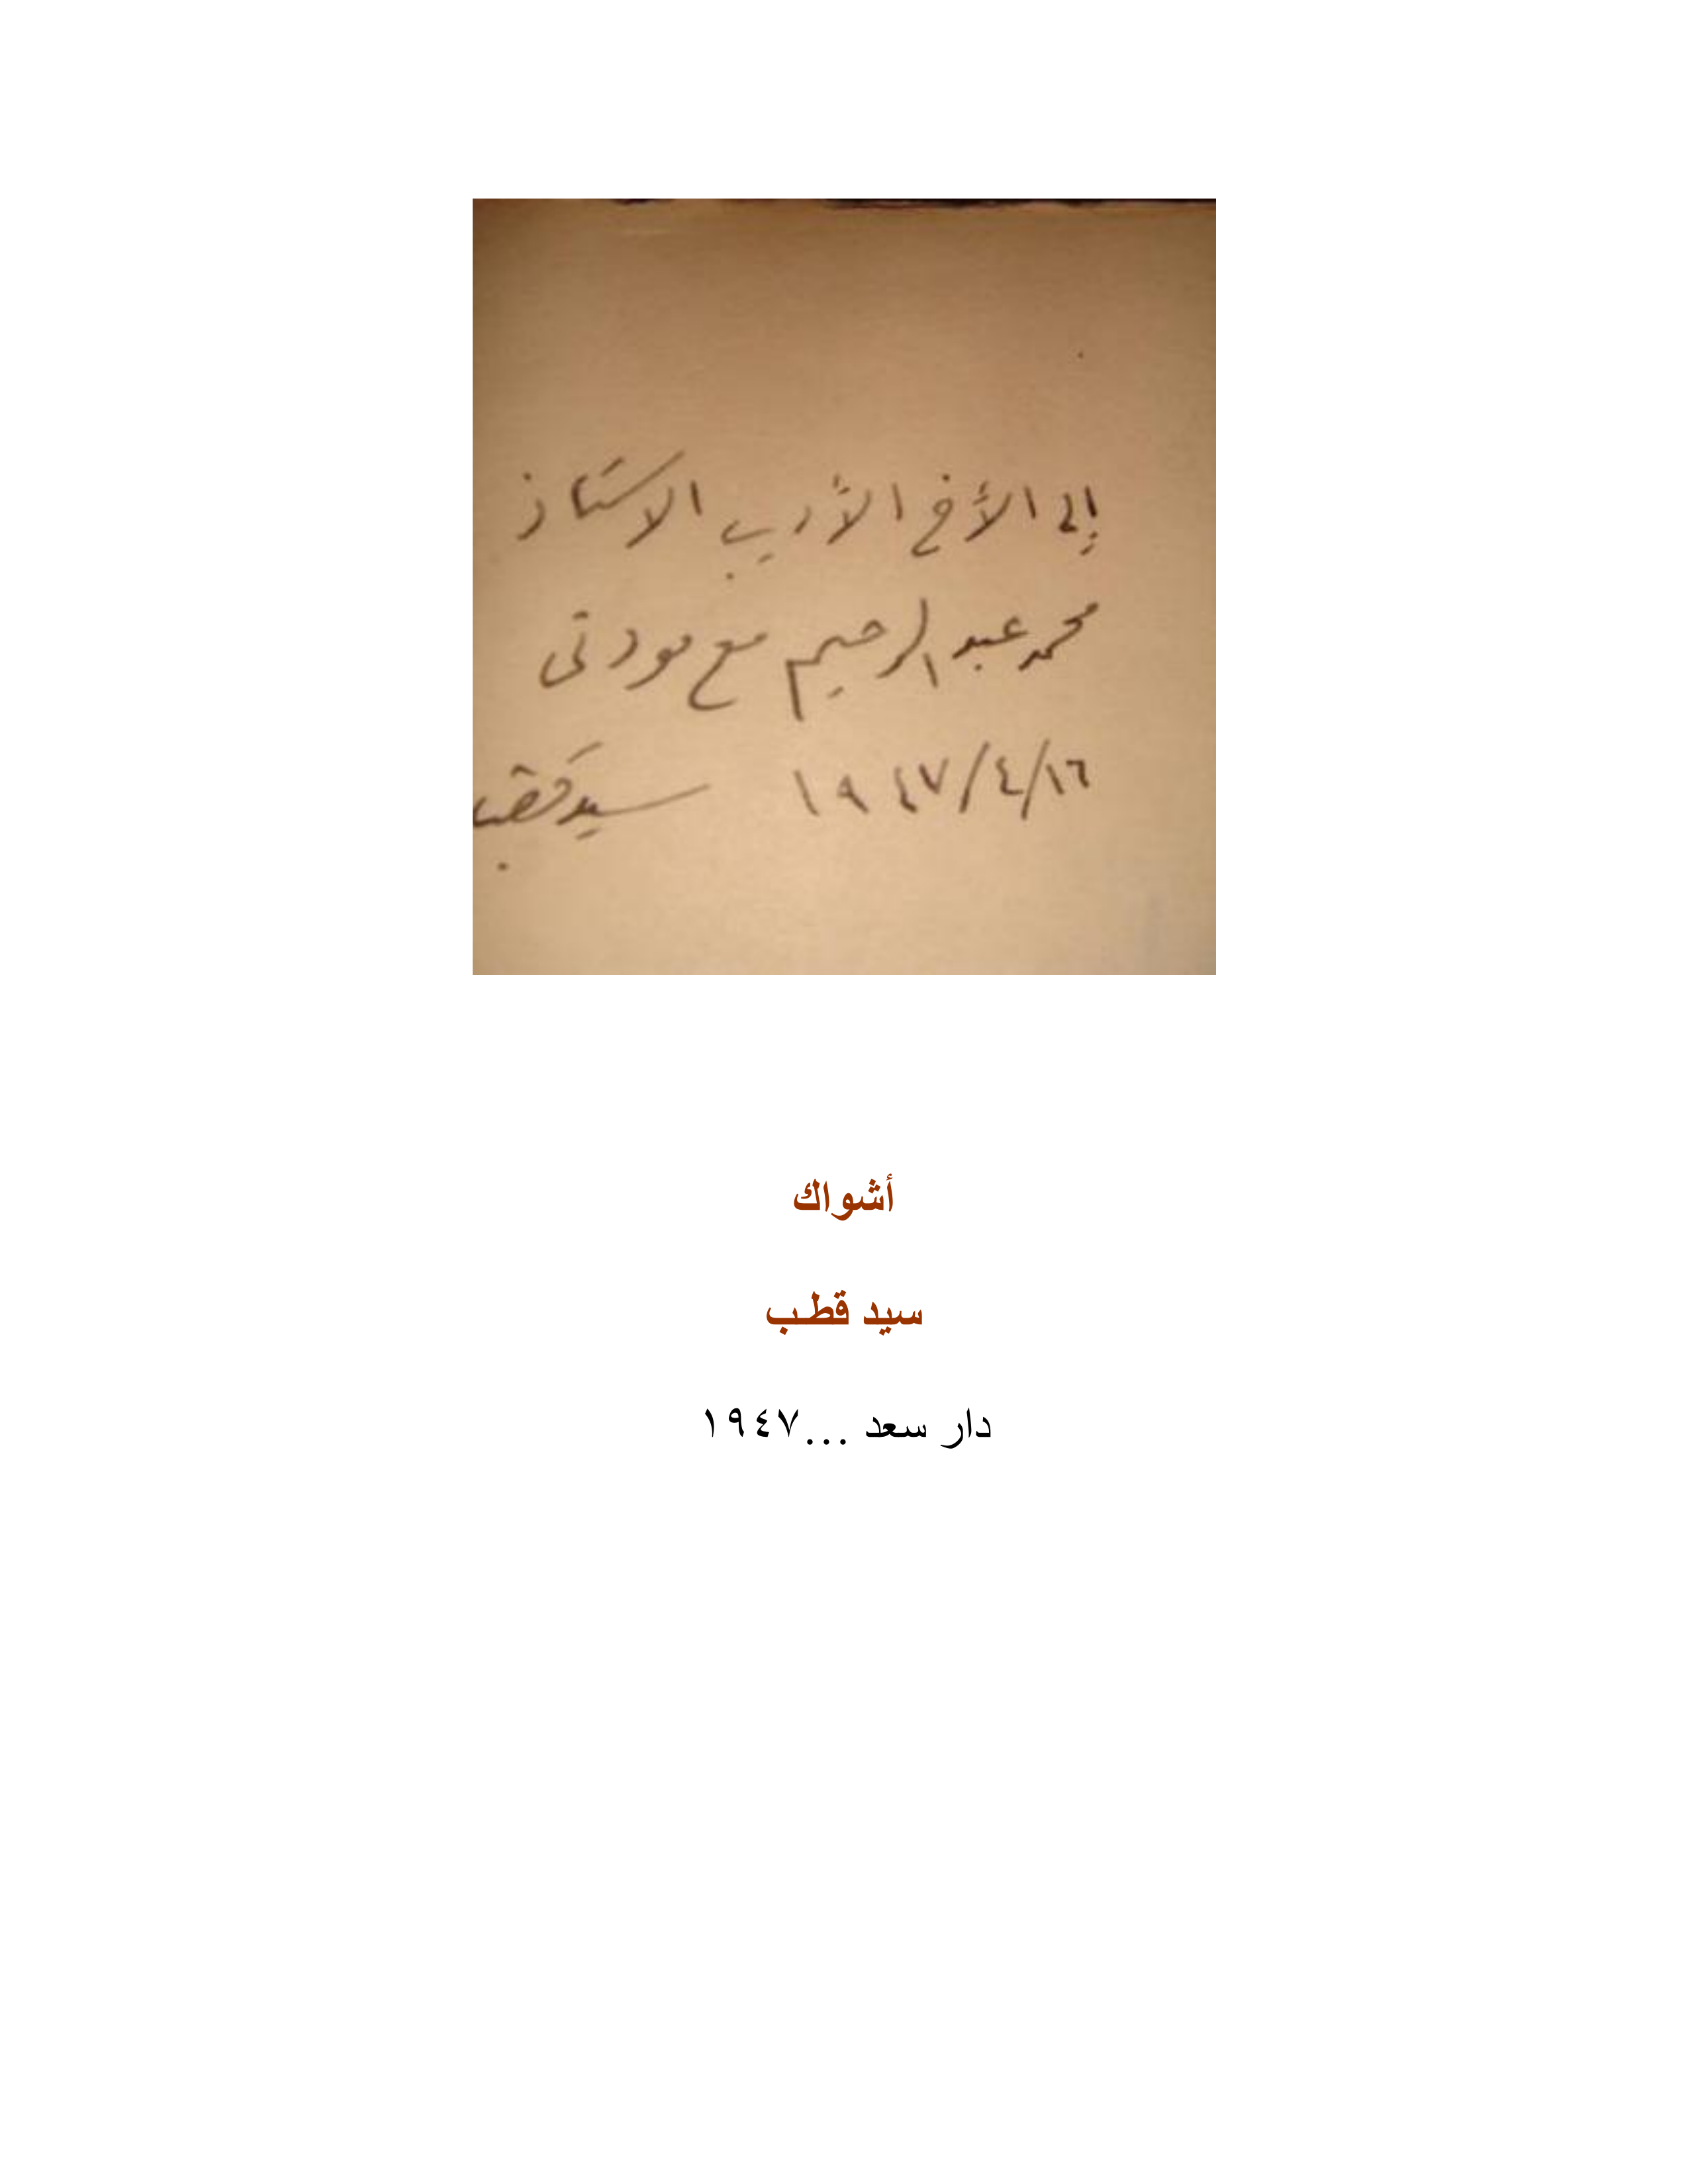 إلى الأخ الأديب الاستاذ
محمد عبد الرحيم مع مودتى
١٦/٤/١٩٤٧ سيد قطب
أشواك
سيد قطب
دار سعد ...١٩٤٧